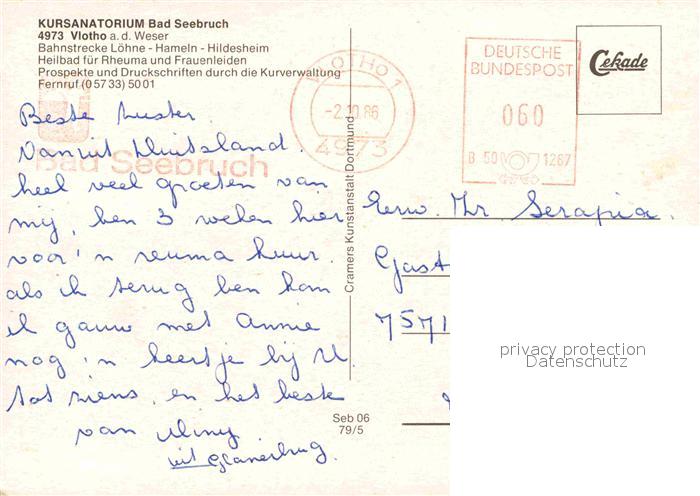 KURSANATORIUM Bad Seebruch
4973 Vlotho a. d. Weser
Bahnstrecke Löhne - Hameln - Hildesheim
Heilbad für Rheuma und Frauenleiden
Prospekte und Druckschriften durch die Kurverwaltung
Fernruf (0 57 33) 50 01
Beste Zuster.
Vanuit Duitsland.
heel veel groeten van
mij, ben 3 weken hier
voor 'n reuma kuur.
als ik terug ben kom
ik gauw met Annie
nog 'n keertje bij U
tot ziens, en het beste
van Miny
uit Glanerbrug.
Bad Seebruch
VLOTHO 1
-2.10.86
4973
DEUTSCHE
BUNDESPOST
060
B 50 1267
Cekade
Cramers Kunstanstalt Dortmund
Seb 06
79/5
Eerw. Zr. Serapia.
Gast
7571
privacy protection
Datenschutz